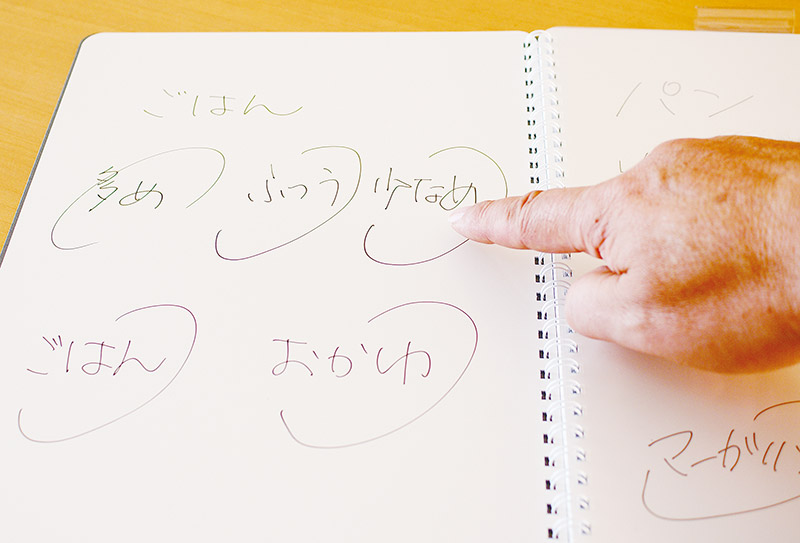 ごはん
多め ふつう 少なめ
ごはん おかゆ
パン
マーガリン